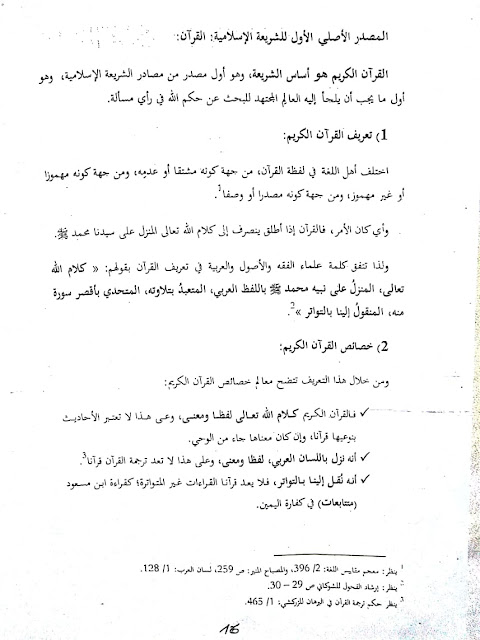 المصدر الأصلي الأول للشريعة الإسلامية: القرآن:
القرآن الكريم هو أساس الشريعة، وهو أول مصدر من مصادر الشريعة الإسلامية، وهو
أول ما يجب أن يلجأ إليه العالِم المجتهد للبحث عن حكم الله في رأي مسألة.
1) تعريف القرآن الكريم:
اختلف أهل اللغة في لفظة القرآن، من جهة كونه مشتقا أو عدمِه، ومن جهة كونه مهموزا
أو غير مهموز، ومن جهة كونه مصدرا أو وصفا1.
وأي كان الأمر، فالقرآن إذا أطلق ينصرف إلى كلام الله تعالى المنزل على سيدنا محمد ﷺ.
ولذا تتفق كلمة علماء الفقه والأصول والعربية في تعريف القرآن بقولهم: « كلام الله
تعالى، المنزلُ على نبيه محمد ﷺ باللفظ العربي، المتعبدُ بتلاوته، المتحدي بأقصر سورة
منه، المنقولُ إلينا بالتواتر »2.
2) خصائص القرآن الكريم:
ومن خلال هذا التعريف تتضح معالم خصائص القرآن الكريم:
✓ فالقرآن الكريم كلام الله تعالى لفظا ومعنى، وعى هذا لا تعتبر الأحاديث
بنوعيها قرآنا، وإن كان معناها جاء من الوحي.
✓ أنه نزل باللسان العربي، لفظا ومعنى، وعلى هذا لا تعد ترجمة القرآن قرآنا3.
✓ أنه نُقل إلينا بالتواتر، فلا يعد قرآنا القراءات غير المتواترة؛ كقراءة ابن مسعود
(متتابعات) في كفارة اليمين.
1 ينظر: معجم مقاييس اللغة: 2/ 396، والمصباح المنير: ص 259، لسان العرب: 1/ 128.
2 ينظر: إرشاد الفحول للشوكاني ص 29 – 30.
3 ينظر حكم ترجمة القرآن في البرهان للزركشي: 1/ 465.